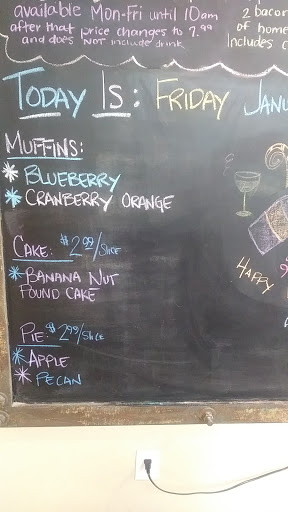 available Mon-Fri until 10am
after that price changes to 7.99
and does NOT include drink
2 bacon
of home
Includes
TODAY IS: FRIDAY JANU
MUFFINS:
* BLUEBERRY
* CRANBERRY ORANGE
CAKE: $2.99/SLICE
* BANANA NUT
POUND CAKE
PIE: $2.99/SLICE
* APPLE
* PECAN
HAPPY